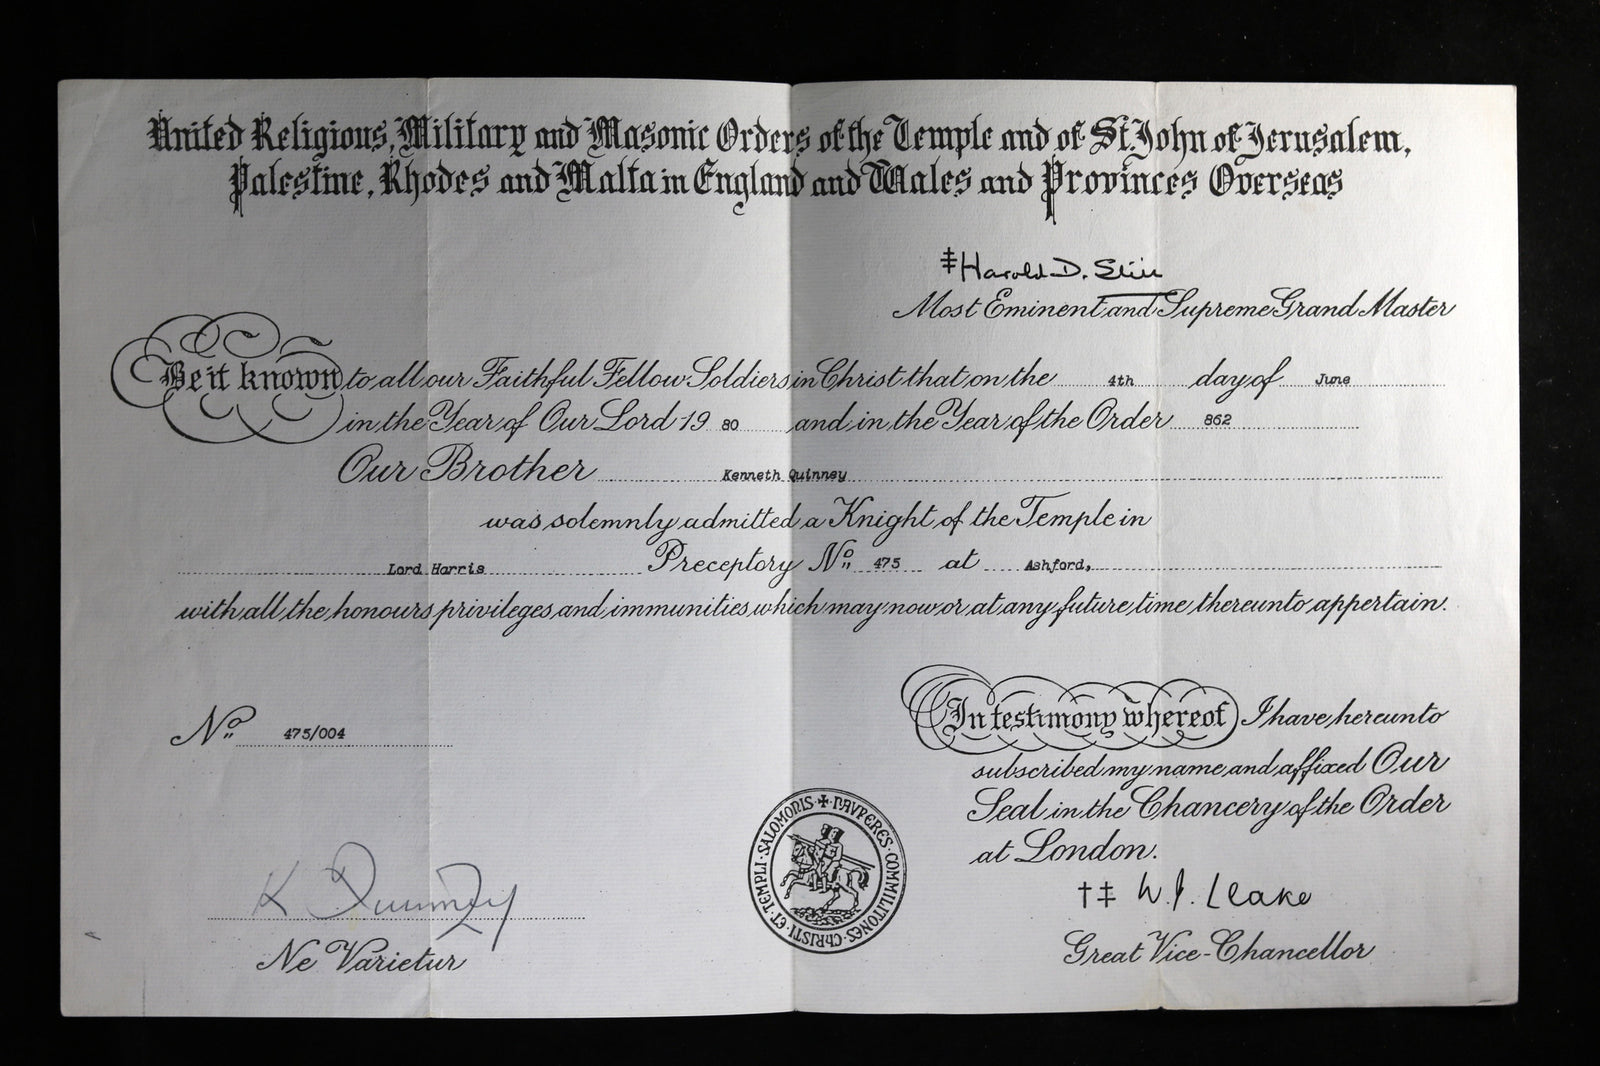 United Religious, Military and Masonic Orders of the Temple and of St. John of Jerusalem,
Palestine, Rhodes and Malta in England and Wales and Provinces Overseas
‡Harold D. Still
Most Eminent and Supreme Grand Master
Be it known to all our Faithful Fellow Soldiers in Christ that on the 4th day of June
in the Year of Our Lord 19 80 and in the Year of the Order 862
Our Brother Kenneth Quinney
was solemnly admitted a Knight of the Temple in
Lord Harris Preceptory No. 475 at Ashford,
with all the honours privileges and immunities which may now or at any future time thereunto appertain.
No. 475/004
In testimony whereof I have hereunto
subscribed my name and affixed Our
Seal in the Chancery of the Order
at London.
†‡ W. J. Leake
Great Vice-Chancellor
K Quinney
Ne Varietur
✠ PAVPERES · COMMILITONES · CHRISTI · ET · TEMPLI · SALOMONIS ·